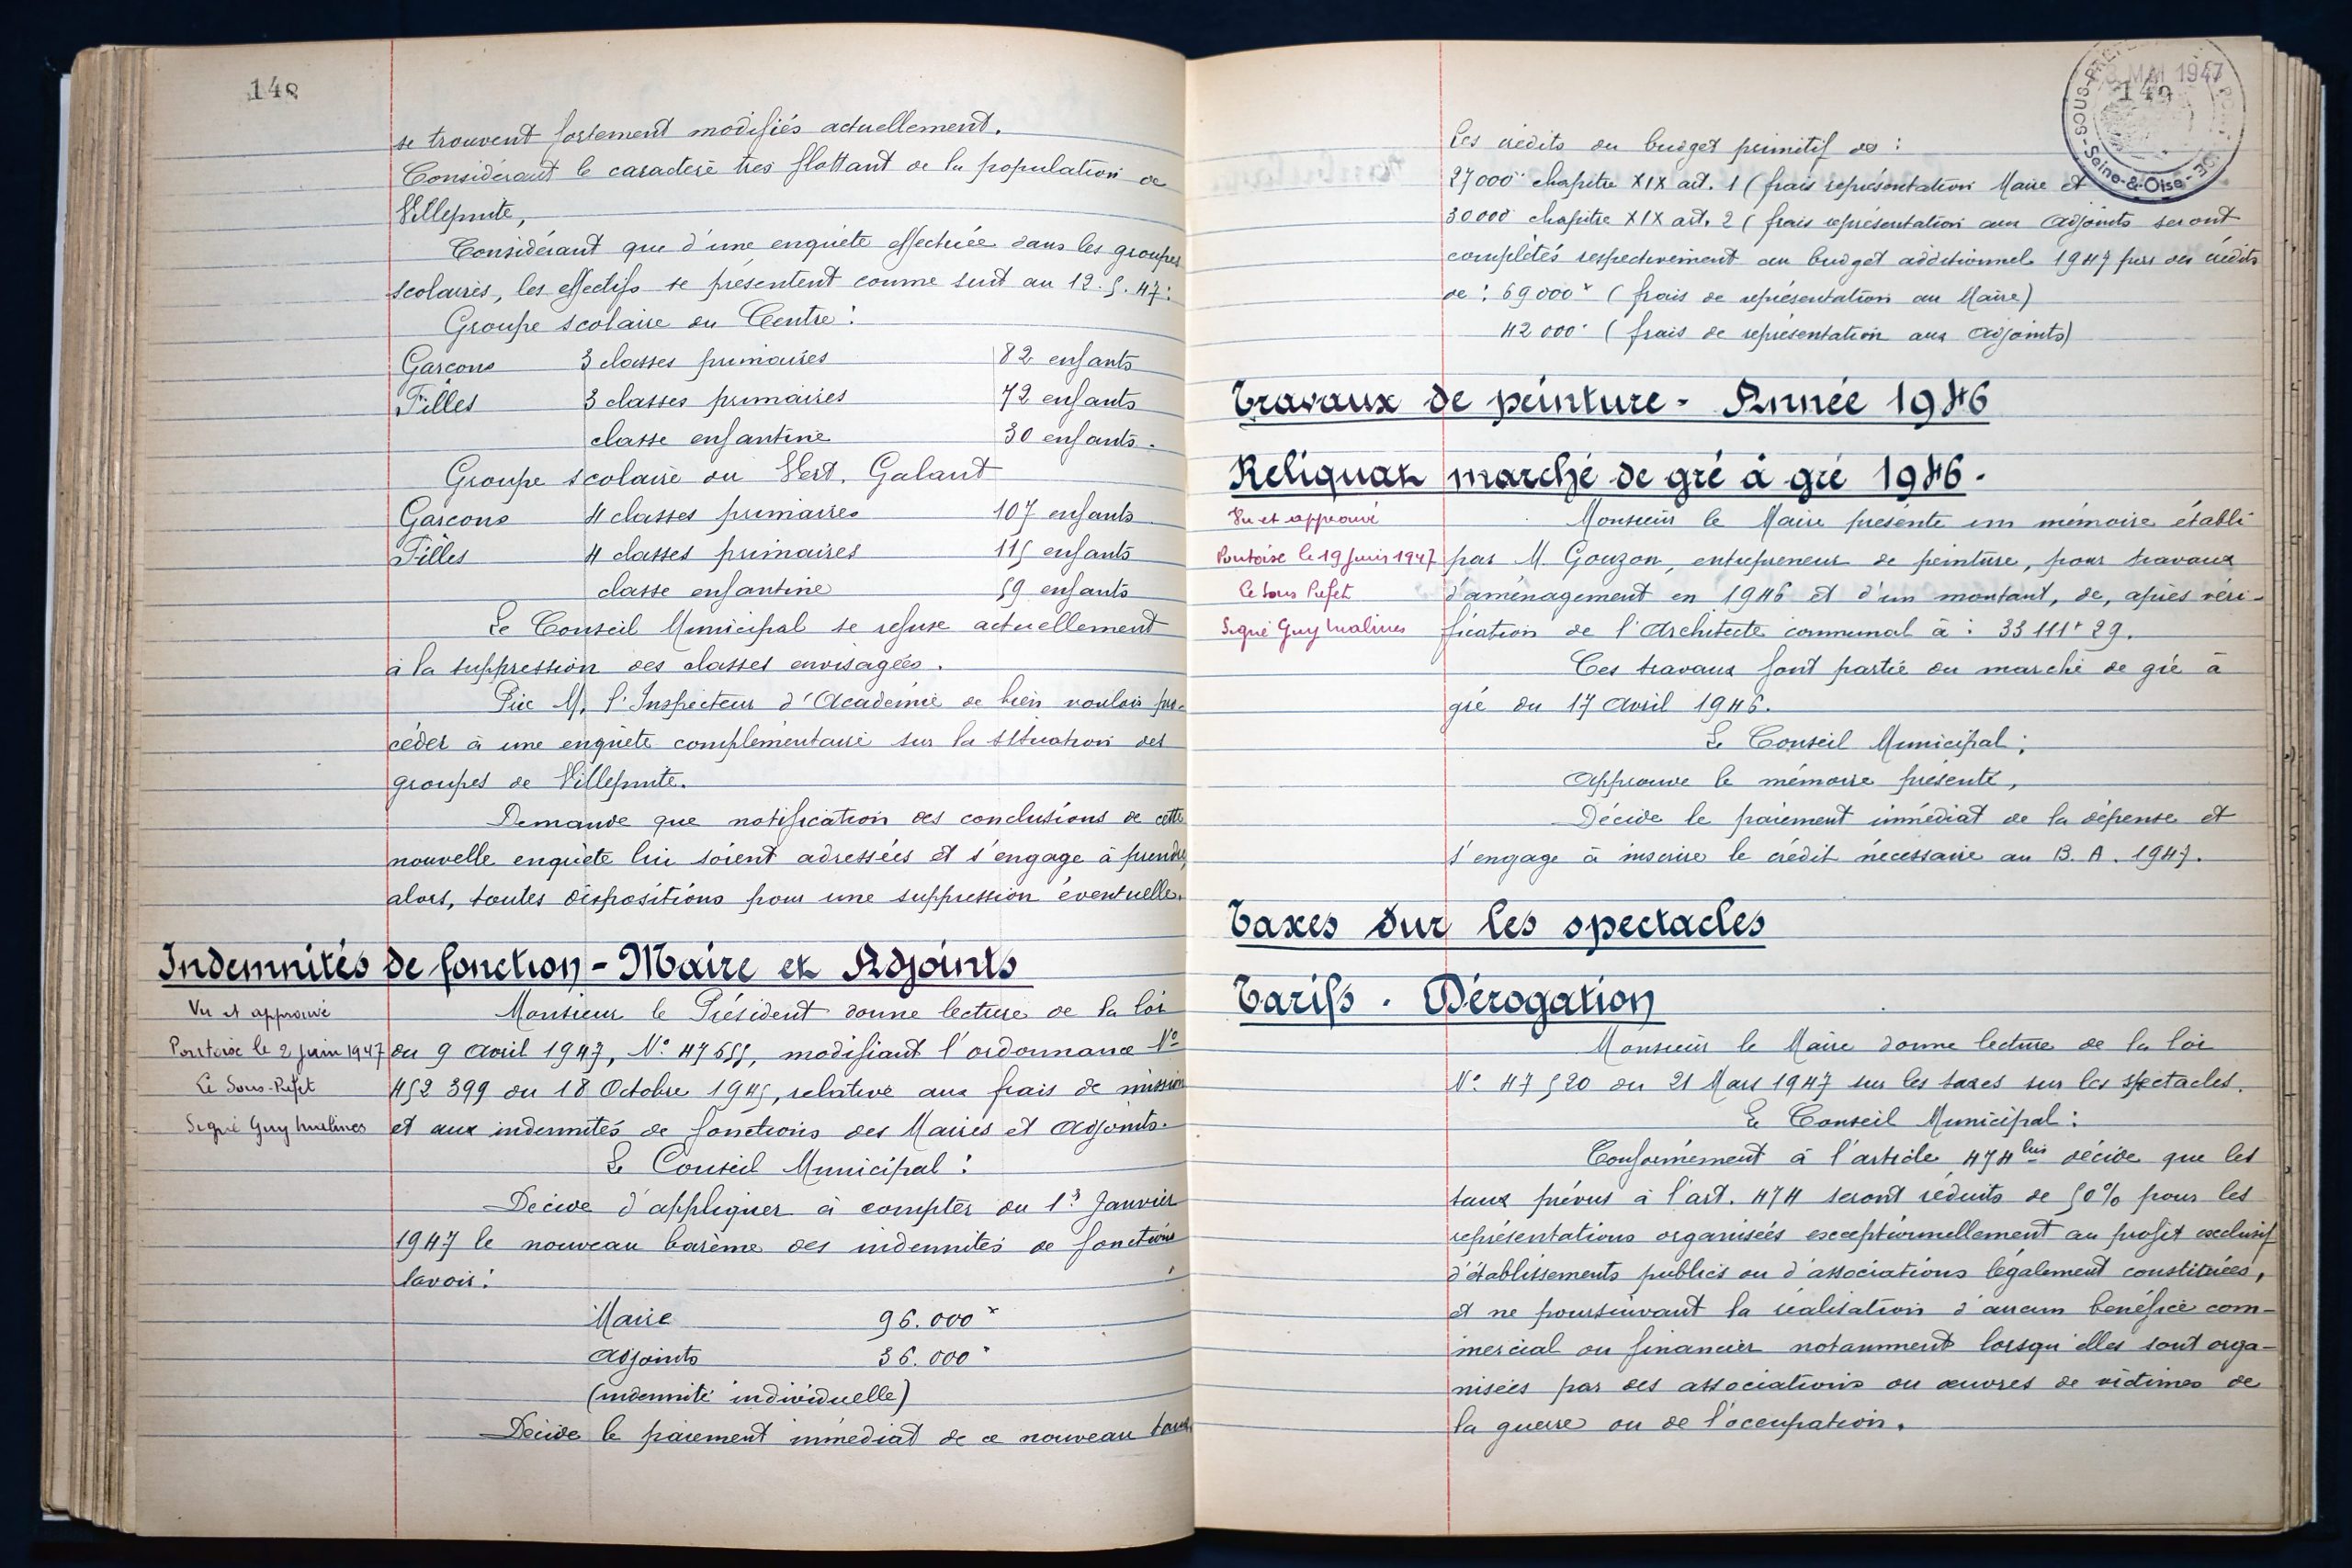 148
se trouvent fortement modifiés actuellement.
Considérant le caractère très flottant de la population de
Villepinte,
Considérant que d'une enquête effectuée dans les groupes
scolaires, les effectifs se présentent comme suit au 12.5.47:
Groupe scolaire du Centre :
Garçons 3 classes primaires 82 enfants
Filles 3 classes primaires 72 enfants
classe enfantine 30 enfants.
Groupe scolaire du Vert. Galant
Garçons 4 classes primaires 107 enfants
Filles 4 classes primaires 115 enfants
classe enfantine 59 enfants
Le Conseil Municipal se refuse actuellement
à la suppression des classes envisagées.
Prie M. l'Inspecteur d'Académie de bien vouloir pro-
céder à une enquête complémentaire sur la situation des
groupes de Villepinte.
Demande que notification des conclusions de cette
nouvelle enquête lui soient adressées et s'engage à prendre,
alors, toutes dispositions pour une suppression éventuelle.
Indemnités de fonction - Maire et Adjoints
Vu et approuvé
Pontoise le 2 juin 1947
Le Sous-Préfet
Signé Guy Malines
Monsieur le Président donne lecture de la loi
du 9 Avril 1947, N° 47655, modifiant l'ordonnance N°
452399 du 18 Octobre 1945, relative aux frais de mission
et aux indemnités de fonctions des Maires et Adjoints.
Le Conseil Municipal :
Décide d'appliquer à compter du 1er Janvier
1947 le nouveau barème des indemnités de fonctions
savoir :
Maire 96.000
Adjoints 36.000
(indemnité individuelle)
Décide le paiement immédiat de ce nouveau taux
149
MAI 1947
SOUS-PRÉF
Seine-&-Oise
Les crédits du budget primitif de :
27000 chapitre XIX art. 1 (frais représentation Maire et
30000 chapitre XIX art. 2 (frais représentation aux Adjoints seront
complétés respectivement au budget additionnel 1947 par des crédits
de : 69000 (frais de représentation au Maire)
42000 (frais de représentation aux Adjoints)
Travaux de peinture - Année 1946
Reliquat marché de gré à gré 1946.
Vu et approuvé
Pontoise le 19 Juin 1947
Le Sous Préfet
Signé Guy Malines
Monsieur le Maire présente un mémoire établi
par M. Gouzon, entrepreneur de peinture, pour travaux
d'aménagement en 1946 et d'un montant, de, après véri-
fication de l'Architecte communal à : 33111f 29.
Ces travaux font partie du marché de gré à
gré du 17 Avril 1946.
Le Conseil Municipal ;
Approuve le mémoire présenté,
Décide le paiement immédiat de la dépense et
s'engage à inscrire le crédit nécessaire au B. A. 1947.
Taxes sur les spectacles
Tarifs . Dérogation
Monsieur le Maire donne lecture de la loi
N° 47520 du 21 Mars 1947 sur les taxes sur les spectacles.
Le Conseil Municipal :
Conformément à l'article 474 bis décide que les
taux prévus à l'art. 474 seront réduits de 50% pour les
représentations organisées exceptionnellement au profit exclusif
d'établissements publics ou d'associations légalement constituées,
et ne poursuivant la réalisation d'aucun bénéfice com-
mercial ou financier notamment lorsqu'elles sont orga-
nisées par des associations ou œuvres de victimes de
la guerre ou de l'occupation.